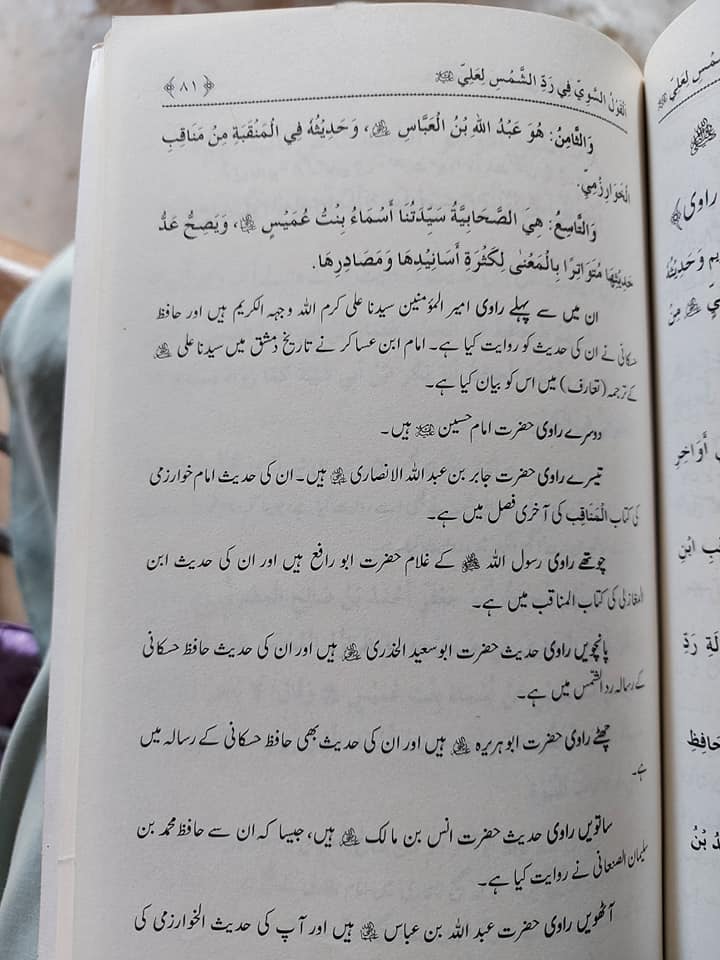 اَلْقَوْلُ السَّوِيّ فِي رَدِّ الشَّمْسِ لِعَلِيّ ﴿٨١﴾
وَالثَّامِنُ: هُوَ عَبْدُ اللهِ بْنُ الْعَبَّاسِ ، وَحَدِيْثُهُ فِي الْمَنْقَبَةِ مِنْ مَنَاقِبِ
الْخَوَارِزْمِيّ.
وَالتَّاسِعُ: هِيَ الصَّحَابِيَّةُ سَيِّدَتُنَا أَسْمَاءُ بِنْتُ عُمَيْسٍ ، وَيَصِحُّ عَدُّ
حَدِيْثِهَا مُتَوَاتِرًا بِالْمَعْنٰى لِكَثْرَةِ أَسَانِيْدِهَا وَمَصَادِرِهَا.
ان میں سے پہلے راوی امیر المؤمنین سیدنا علی کرم اللہ وجہہ الکریم ہیں اور حافظ
حسکانی نے ان کی حدیث کو روایت کیا ہے۔ امام ابن عساکر نے تاریخ دمشق میں سیدنا علی
کے ترجمہ (تعارف) میں اس کو بیان کیا ہے۔
دوسرے راوی حضرت امام حسین ہیں۔
تیسرے راوی حضرت جابر بن عبد اللہ الانصاری ہیں۔ ان کی حدیث امام خوارزمی
کی کتاب الْمَنَاقِب کی آخری فصل میں ہے۔
چوتھے راوی رسول اللہ ﷺ کے غلام حضرت ابو رافع ہیں اور ان کی حدیث ابن
المغازلی کی کتاب المناقب میں ہے۔
پانچویں راوی حدیث حضرت ابو سعید الخدری ہیں اور ان کی حدیث حافظ حسکانی
کے رسالہ رد الشمس میں ہے۔
چھٹے راوی حضرت ابو ہریرہ ہیں اور ان کی حدیث بھی حافظ حسکانی کے رسالہ میں
ہے۔
ساتویں راوی حدیث حضرت انس بن مالک ہیں، جیسا کہ ان سے حافظ محمد بن
سلیمان الصنعانی نے روایت کیا ہے۔
آٹھویں راوی حضرت عبد اللہ بن عباس ہیں اور آپ کی حدیث الخوارزمی کی